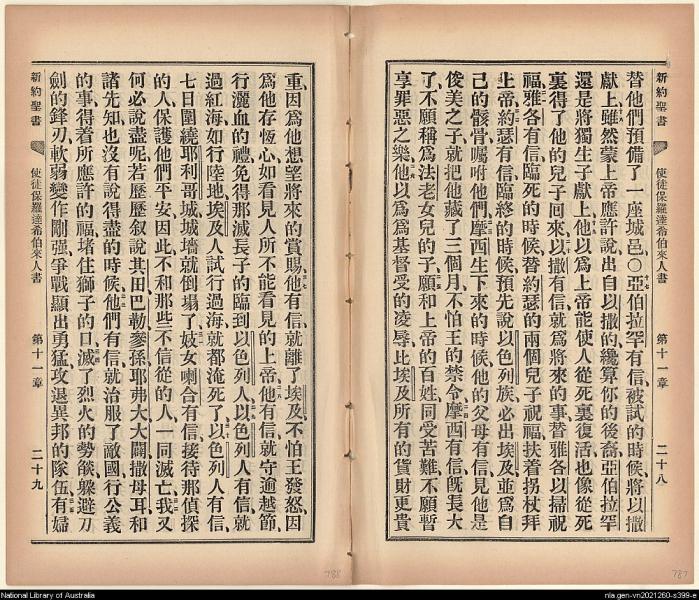 新約聖書
使徒保羅達希伯來人書
第十一章
二十八
替他們預備了一座城邑〇亞伯拉罕有信被試的時候將以撒
獻上雖然蒙上帝應許說出自以撒的纔算你的後裔亞伯拉罕
還是將獨生子獻上他以爲上帝能使人從死裏復活也像從死
裏得了他的兒子回來以撒有信就爲將來的事替雅各以掃祝
福雅各有信臨死的時候替約瑟的兩個兒子祝福扶着拐杖拜
上帝約瑟有信臨終的時候預先說以色列族必出埃及並爲自
己的骸骨囑咐他們摩西生下來的時候他的父母有信見他是
俊美之子就把他藏了三個月不怕王的禁令摩西有信旣長大
了不願稱爲法老女兒的子願和上帝的百姓同受苦難不願暫
享罪惡之樂他以爲爲基督受的凌辱比埃及所有的貨財更貴
787
重因爲他想望將來的賞賜他有信就離了埃及不怕王發怒因
爲他存恆心如看見人所不能看見的上帝他有信就守逾越節
行灑血的禮免得那滅長子的臨到以色列人以色列人有信就
過紅海如行陸地埃及人試行過海就都淹死了以色列人有信
七日圍繞耶利哥城城墻就倒塌了妓女喇合有信接待那偵探
的人保護他們平安因此不和那些不信從的人一同滅亡我又
何必說盡呢若歷歷叙說其田巴勒參孫耶弗大大闢撒母耳和
諸先知也沒有說得盡的時候他們有信就治服了敵國行公義
的事得着所應許的福堵住獅子的口滅了烈火的勢燄躲避刀
劍的鋒刃軟弱變作剛强爭戰顯出勇猛攻退異邦的隊伍有婦
新約聖書
使徒保羅達希伯來人書
第十一章
二十九
788
National Library of Australia
nla.gen-vn2021260-s399-e